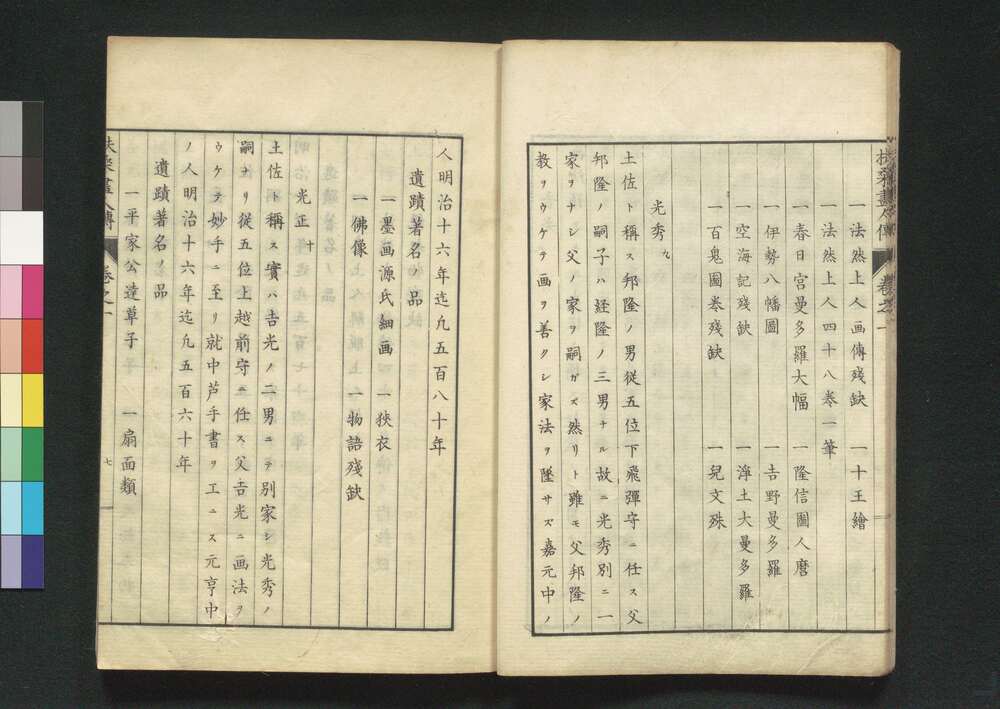 扶桑畫人傳 卷之一
一法然上人画傳殘缺 一十王繪
一法然上人四十八卷一筆
一春日宮曼多羅大幅 一隆信圖人麿
一伊勢八幡圖 一吉野曼多羅
一空海記殘缺 一淨土大曼多羅
一百鬼圖卷殘缺 一兒文殊
光秀 九
土佐ト稱ス邦隆ノ男從五位下飛彈守ニ任ス父
邦隆ノ嗣子ハ経隆ノ三男ナル故ニ光秀別ニ一
家ヲナシ父ノ家ヲ嗣ガズ然リト雖モ父邦隆ノ
教ヲウケテ画ヲ善クシ家法ヲ墜サズ嘉元中ノ
人明治十六年迄凢五百八十年
遺蹟著名ノ品
一墨画源氏細画 一狹衣
一佛像 一物語殘缺
光正 十
土佐ト稱ス實ハ吉光ノ二男ニテ別家シ光秀ノ
嗣ナリ從五位上越前守ニ任ス父吉光ニ画法ヲ
ウケテ妙手ニ至リ就中芦手書ヲ工ニス元亨中
ノ人明治十六年迄凢五百六十年
遺蹟著名ノ品
一平家公達草子 一扇面類
扶桑畫人傳 卷之一 七